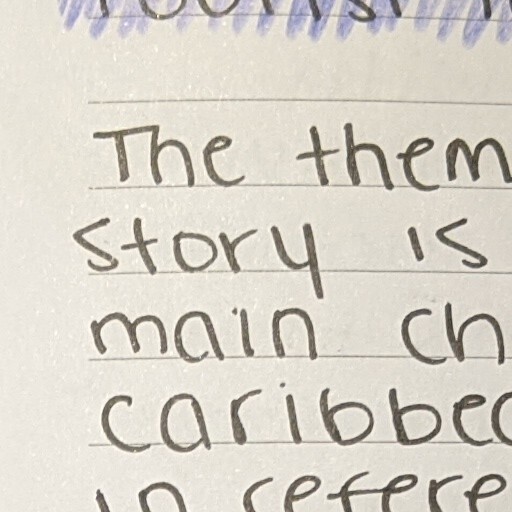 The them
story is
main ch
caribbe
in refere